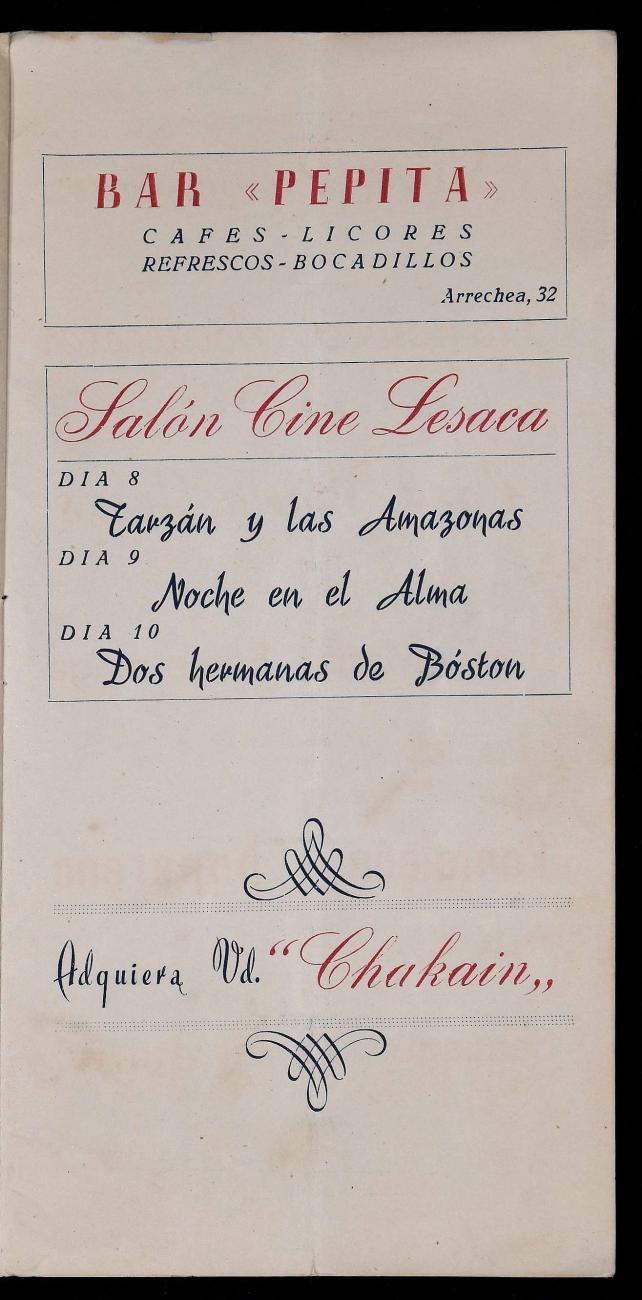 BAR «PEPITA»
CAFES-LICORES
REFRESCOS-BOCADILLOS
Arrechea, 32
Salón Cine Lesaca
DIA 8
Tarzán y las Amazonas
DIA 9
Noche en el Alma
DIA 10
Dos hermanas de Bóston
Adquiera Vd. “Chakain„